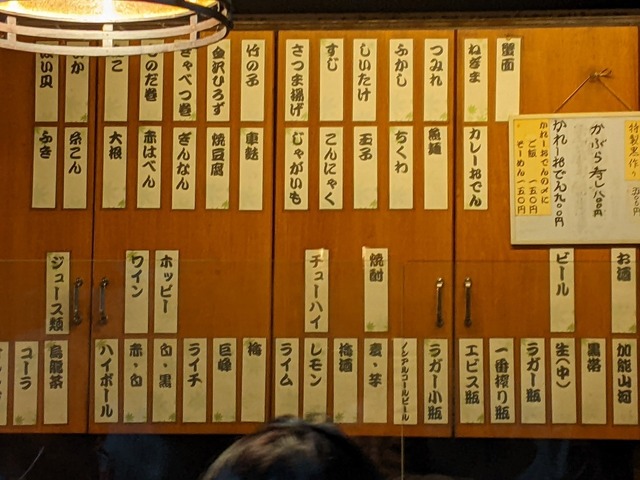 蟹面
ねぎま
つみれ
ふかし
しいたけ
すじ
さつま揚げ
竹の子
金沢ひろず
きゃべつ巻
カレーおでん
魚麺
ちくわ
玉子
こんにゃく
じゃがいも
車麩
焼豆腐
ぎんなん
赤はべん
大根
糸こん
ふき
特製黒作り 五〇〇円
かぶら寿し 八〇〇円
かれーおでん 九〇〇円
かれーおでんの〆に
ご飯 一五〇円
そーめん 一五〇円
お酒
ビール
焼酎
チューハイ
ホッピー
ワイン
ジュース類
加能山河
黒帯
生(中)
ラガー瓶
一番搾り瓶
エビス瓶
ラガー小瓶
ノンアルコールビール
麦・芋
梅酒
レモン
ライム
梅
巨峰
ライチ
白・黒
赤・白
ハイボール
烏龍茶
コーラ